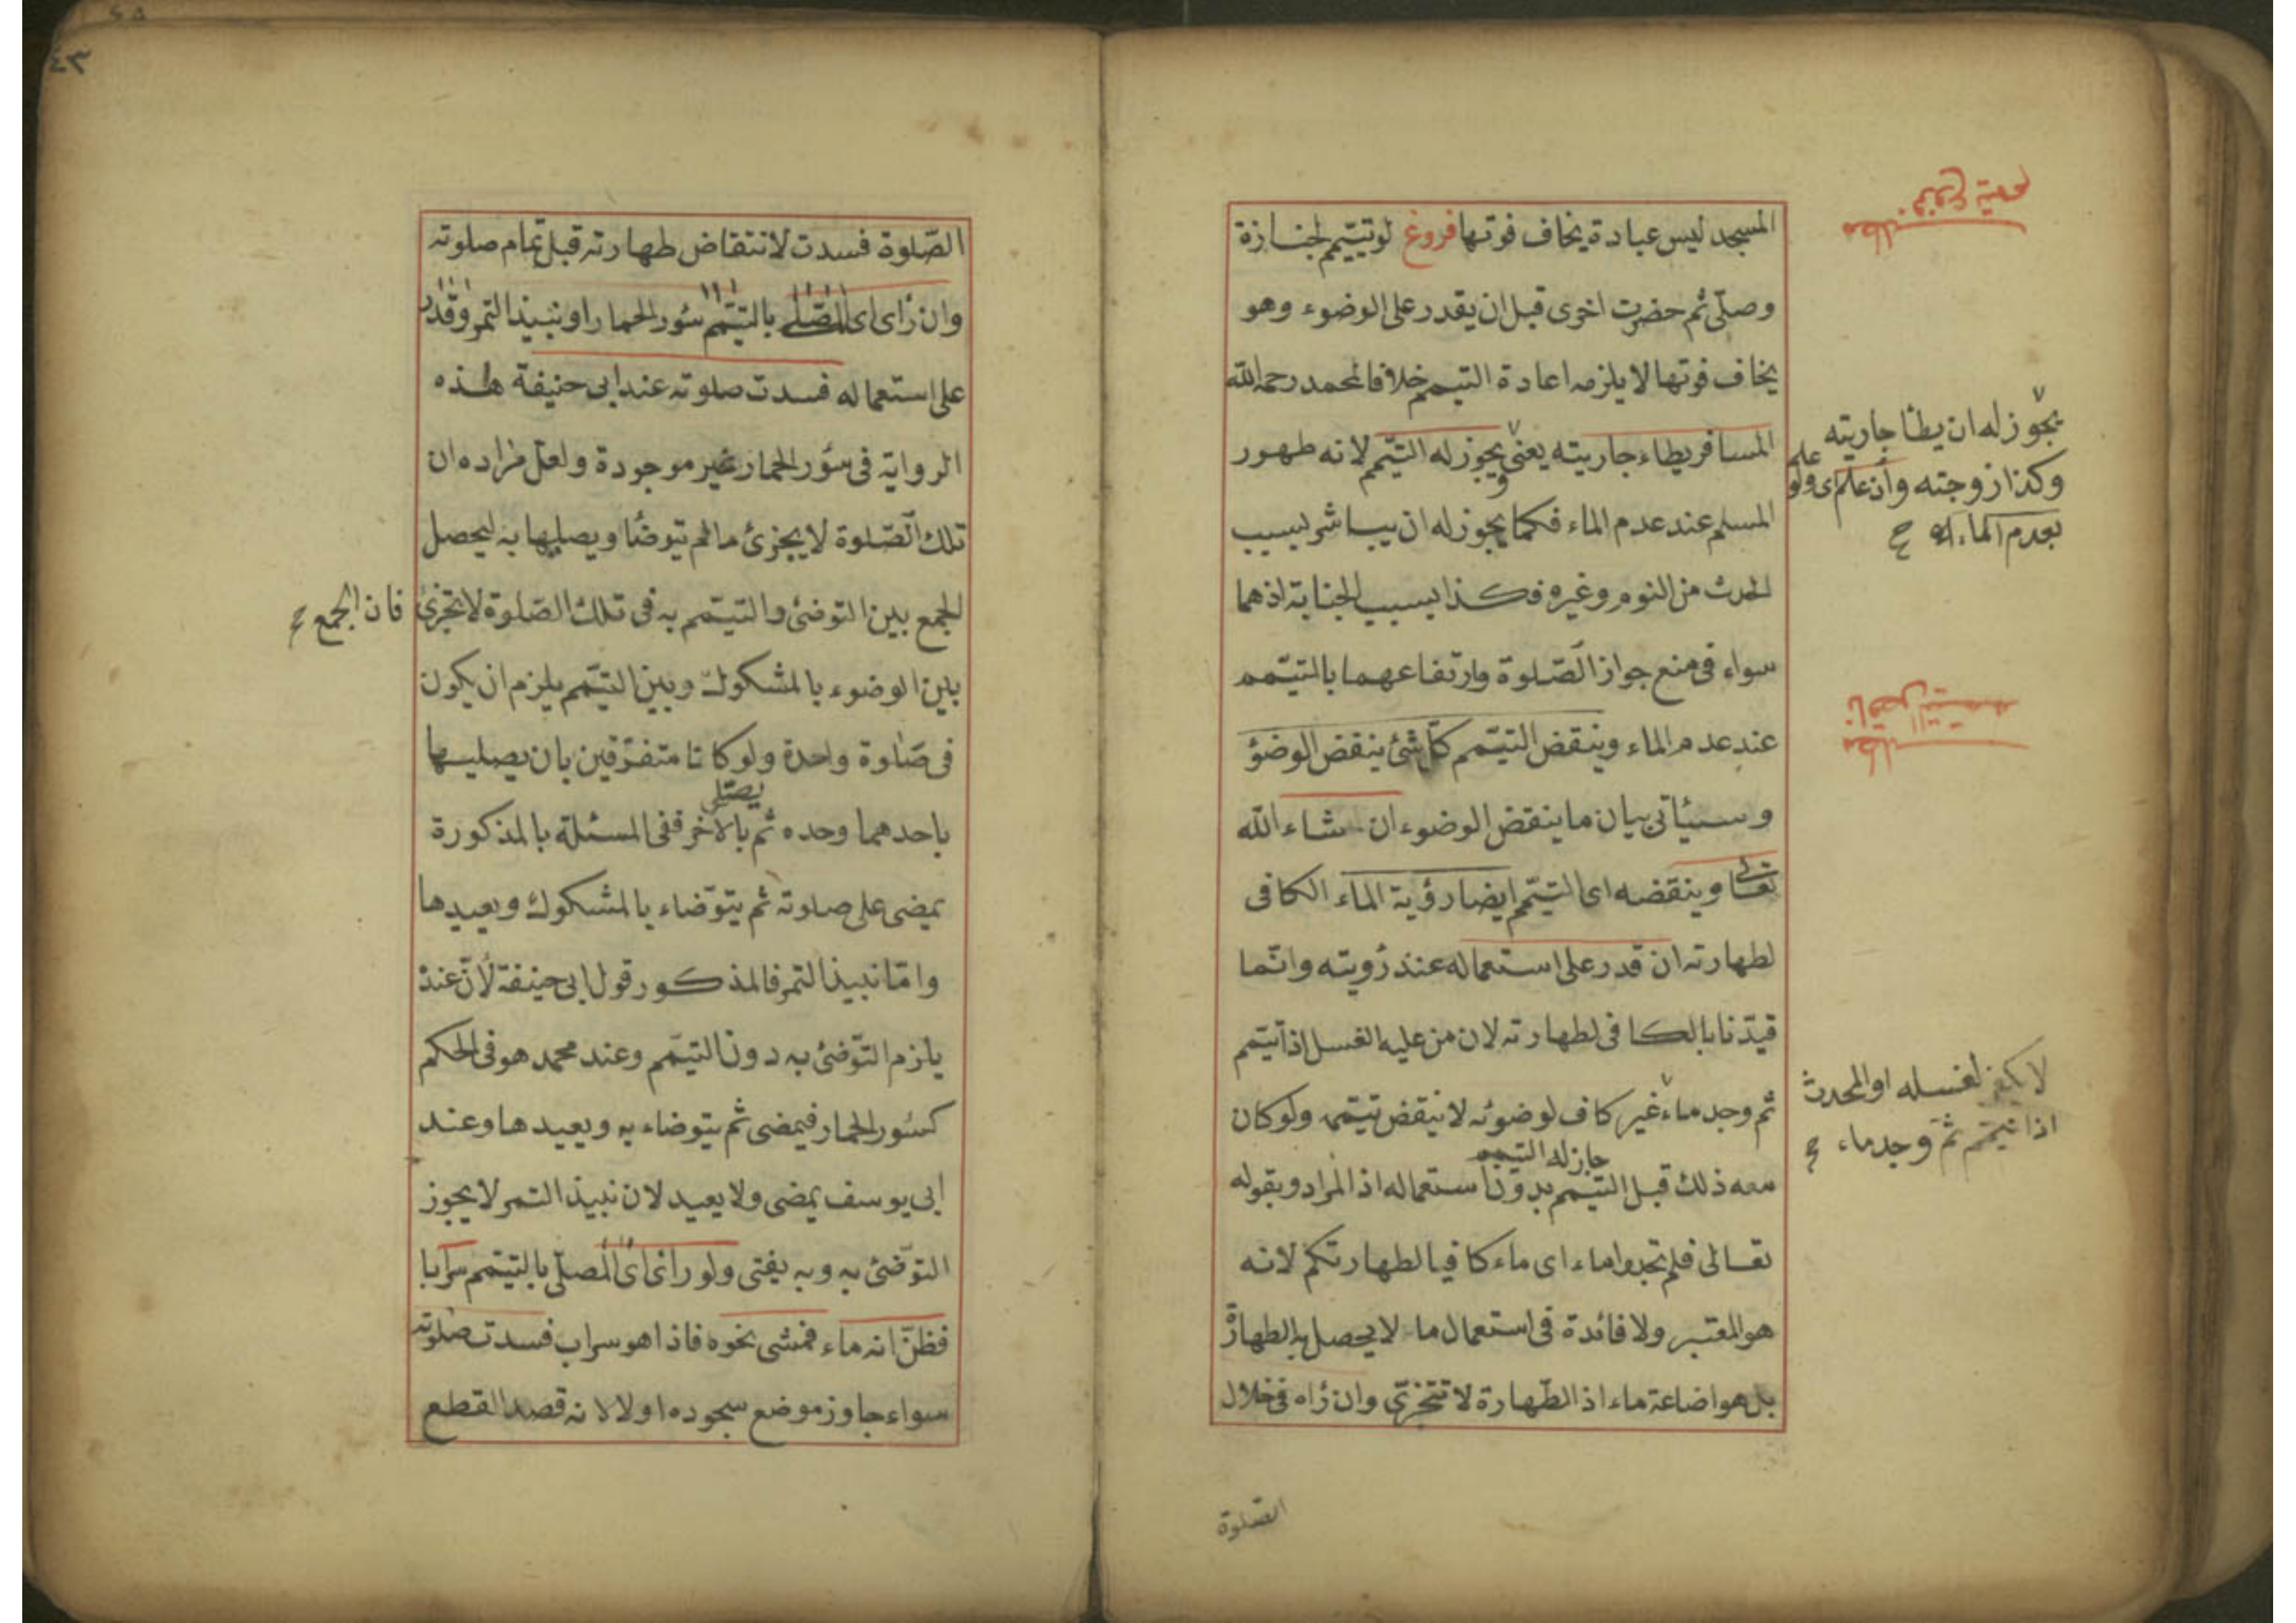 المسجد ليس عبادة يخاف فوتها فروغ لو تيمم لجنازة
وصلى ثم حضرت اخرى قبل ان يقدر على الوضوء وهو
يخاف فوتها لا يلزمه اعادة التيمم خلافا لمحمد رحمه الله
المسافر يطاء جاريته يعنى يجوز له التيمم لانه طهور
المسلم عند عدم الماء فكما يجوز له ان يباشر بسبب
الحدث من النوم وغيره فكذا بسبب الجنابة اذ هما
سواء فى منع جواز الصلوة وارتفاعهما بالتيمم
عند عدم الماء وينقض التيمم كل شئ ينقض الوضؤ
وسيئاتى بيان ما ينقض الوضوء ان شاء الله
تعالى وينقضه اى التيمم ايضا رؤية الماء الكافى
لطهارته ان قدر على استعماله عند رؤيته وانما
قيدنا بالكافى لطهارته لان من عليه الغسل اذا تيمم
ثم وجد ماء غير كاف لوضوئه لا ينقض تيممه ولو كان
جاز له التيمم
معه ذلك قبل التيمم بدون استعماله اذ المراد وبقوله
تعالى فلم تجدوا ماء اى ماء كافيا لطهارتكم لانه
هو المعتبر ولا فائدة فى استعمال ما لا يحصل به الطهارة
بل هو اضاعة ماء اذ الطهارة لا تتجزى وان رأه فى خلال
الصلوة
فروع تيمم
مطلب
يجوز له ان يطأ جاريته
وكذا زوجته وان علم اى ولو علم
بعدم الماء ح
ناقض التيمم
مطلب
لا يكفى لغسله او المحدث
اذا تيمم ثم وجد ماء ح
٤٣
الصلوة فسدت لانتقاض طهارته قبل تمام صلوته
وان رأى اى المصلى بالتيمم سؤر الحمار او نبيذ التمر وقدر
على استعماله فسدت صلوته عند ابى حنيفة هذه
الرواية فى سؤر الحمار غير موجودة ولعل مراده ان
تلك الصلوة لا يجزئ ما لم يتوضأ ويصليها به ليحصل
الجمع بين التوضئ والتيمم به فى تلك الصلوة لا تجزئ
فان الجمع ح
بين الوضوء بالمشكوك وبين التيمم يلزم ان يكون
فى صلوة واحدة ولو كانا متفرقين بان يصليها
يصلى
باحدهما وحده ثم بالاخر ففى المسئلة بالمذكورة
يمضى على صلوته ثم يتوضاء بالمشكوك ويعيدها
واما نبيذ التمر فالمذكور قول ابى حنيفة لان عنده
يلزم التوضئ به دون التيمم وعند محمد هو فى الحكم
كسئور الحمار فيمضى ثم يتوضاء به ويعيدها وعند
ابى يوسف يمضى ولا يعيد لان نبيذ التمر لا يجوز
التوضئ به وبه يفتى ولو راى اى المصلى بالتيمم سرابا
فظن انه ماء فمشى نحوه فاذا هو سراب فسدت صلوته
سواء جاوز موضع سجوده او لا لانه قصد القطع